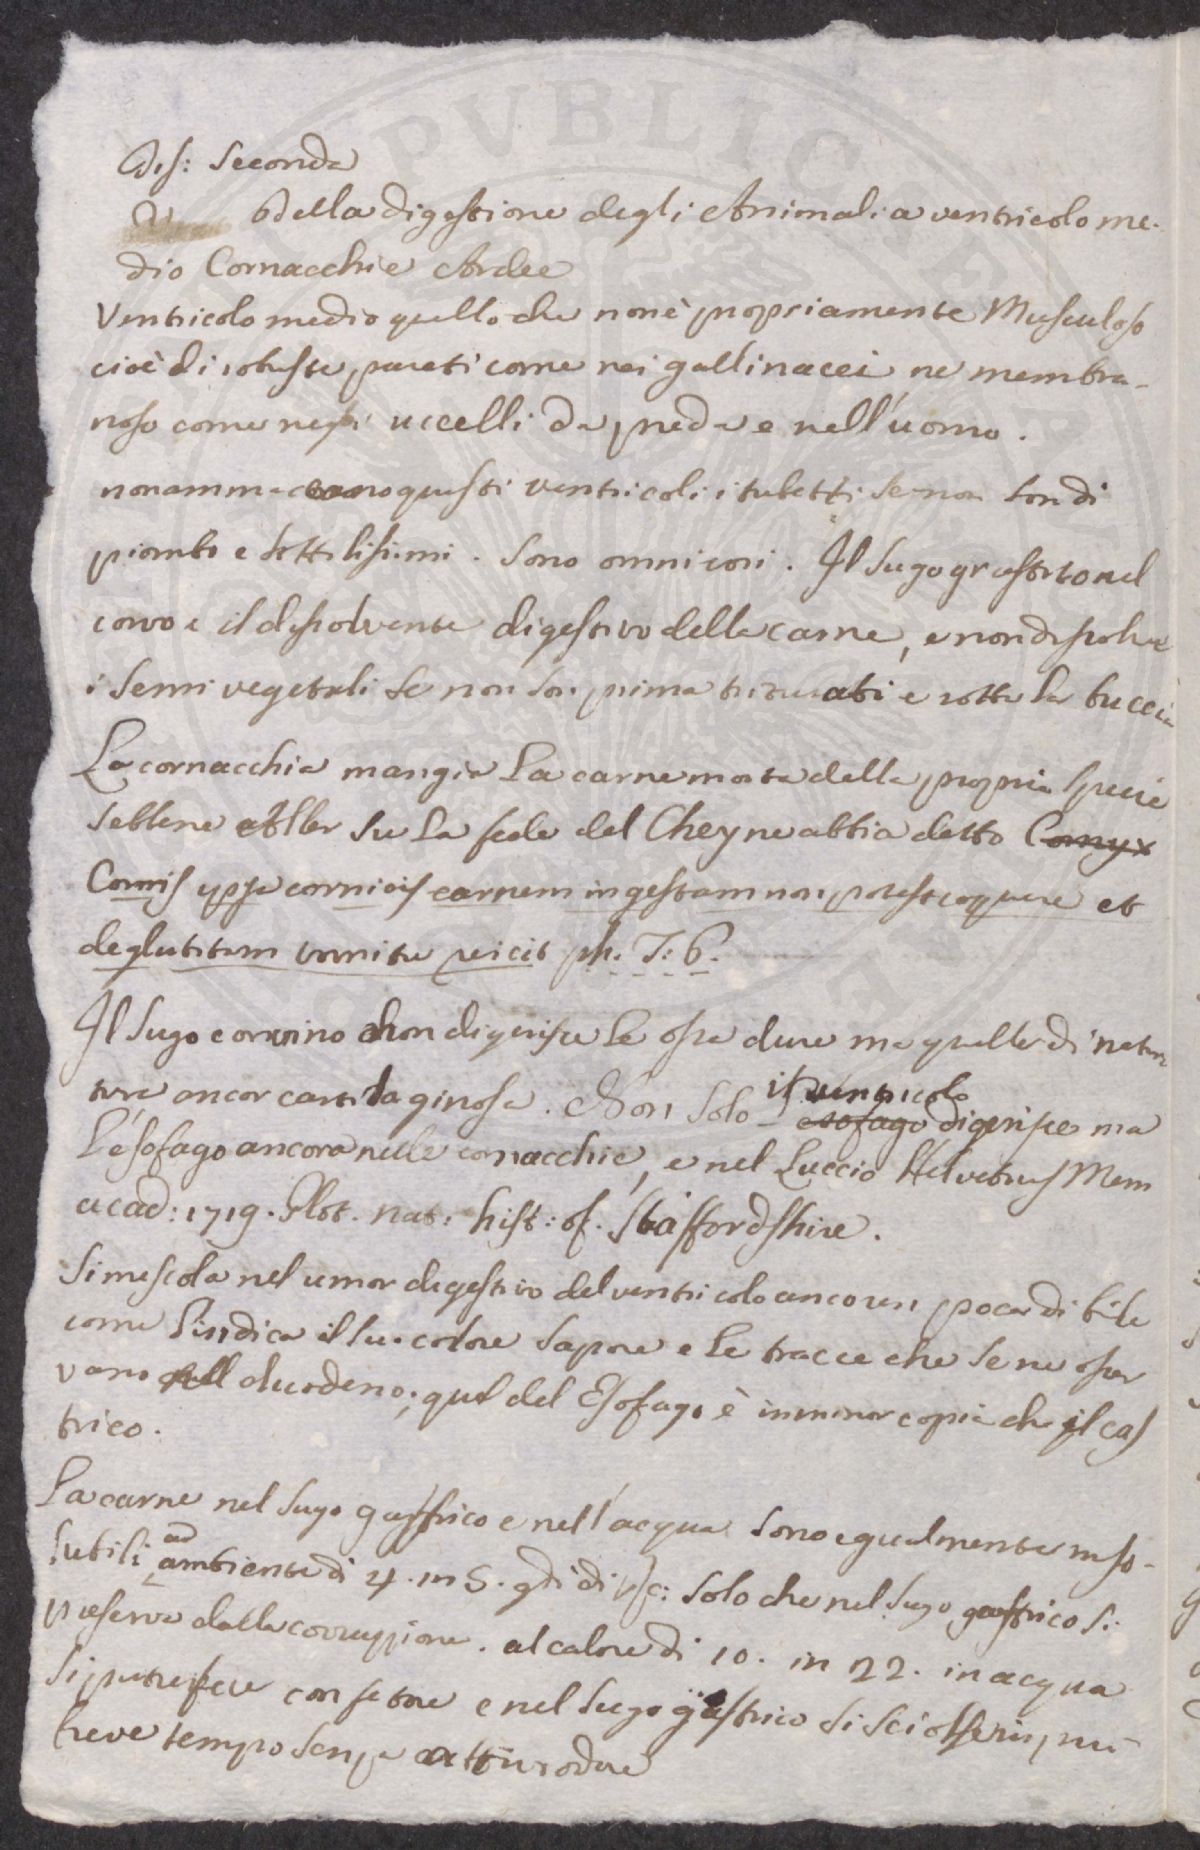 Dis: Seconda
Della digestione degli Animali a ventricolo me-
dio Cornacchie Ardee
Ventricolo medio quello che non è propriamente Musculoso
cioè di robuste pareti come nei gallinacei ne membra-
noso come negli uccelli da preda e nell'uomo.
non ammaccano questi ventricoli i tubetti se non son di
piombo e sottilissimi. Sono omnivori. Il Sugo grastrico nel
corvo e il dissolvente digestivo della carne, e non dissolve
i semi vegetali se non son prima triturati e rotta la buccia
La cornacchia mangia la carne morta della propria specie
Sebbene Aller su la fede del Cheyne abbia detto Cornyx
Cornis ypsa cornicis carnem ingestam non potest coquere et
deglutitam vomitu reicit ph. T: 6.
Il Sugo corvino non digerisce le ossa dure ma quelle di natura
tura ancor cartilaginosa. Non solo il ventricolo
esofago digerisce ma
l'esofago ancora nelle cornacchie, e nel Luccio Helvetius Mem
acad: 1719. Plot. nat: hist: of. Staffordshire.
Si mescola nel umor digestivo del ventricolo ancora un poca di bile
come l'indica il suo colore sapore e le tracce che se ne osser
vano nell duodeno; quel del Esofago è in minor copia che il gas
trico.
La carne nel sugo gastrico e nell'acqua sono egualmente inso-
lubili ad ambiente di 4. in 5. gdi di : solo che nel sugo gastrico si
preserva dalla corruzione. al calore di 10. in 22. in acqua
si putrefece con fetore e nel sugo gastrico si sciolse in più
breve tempo senza cattivo odore